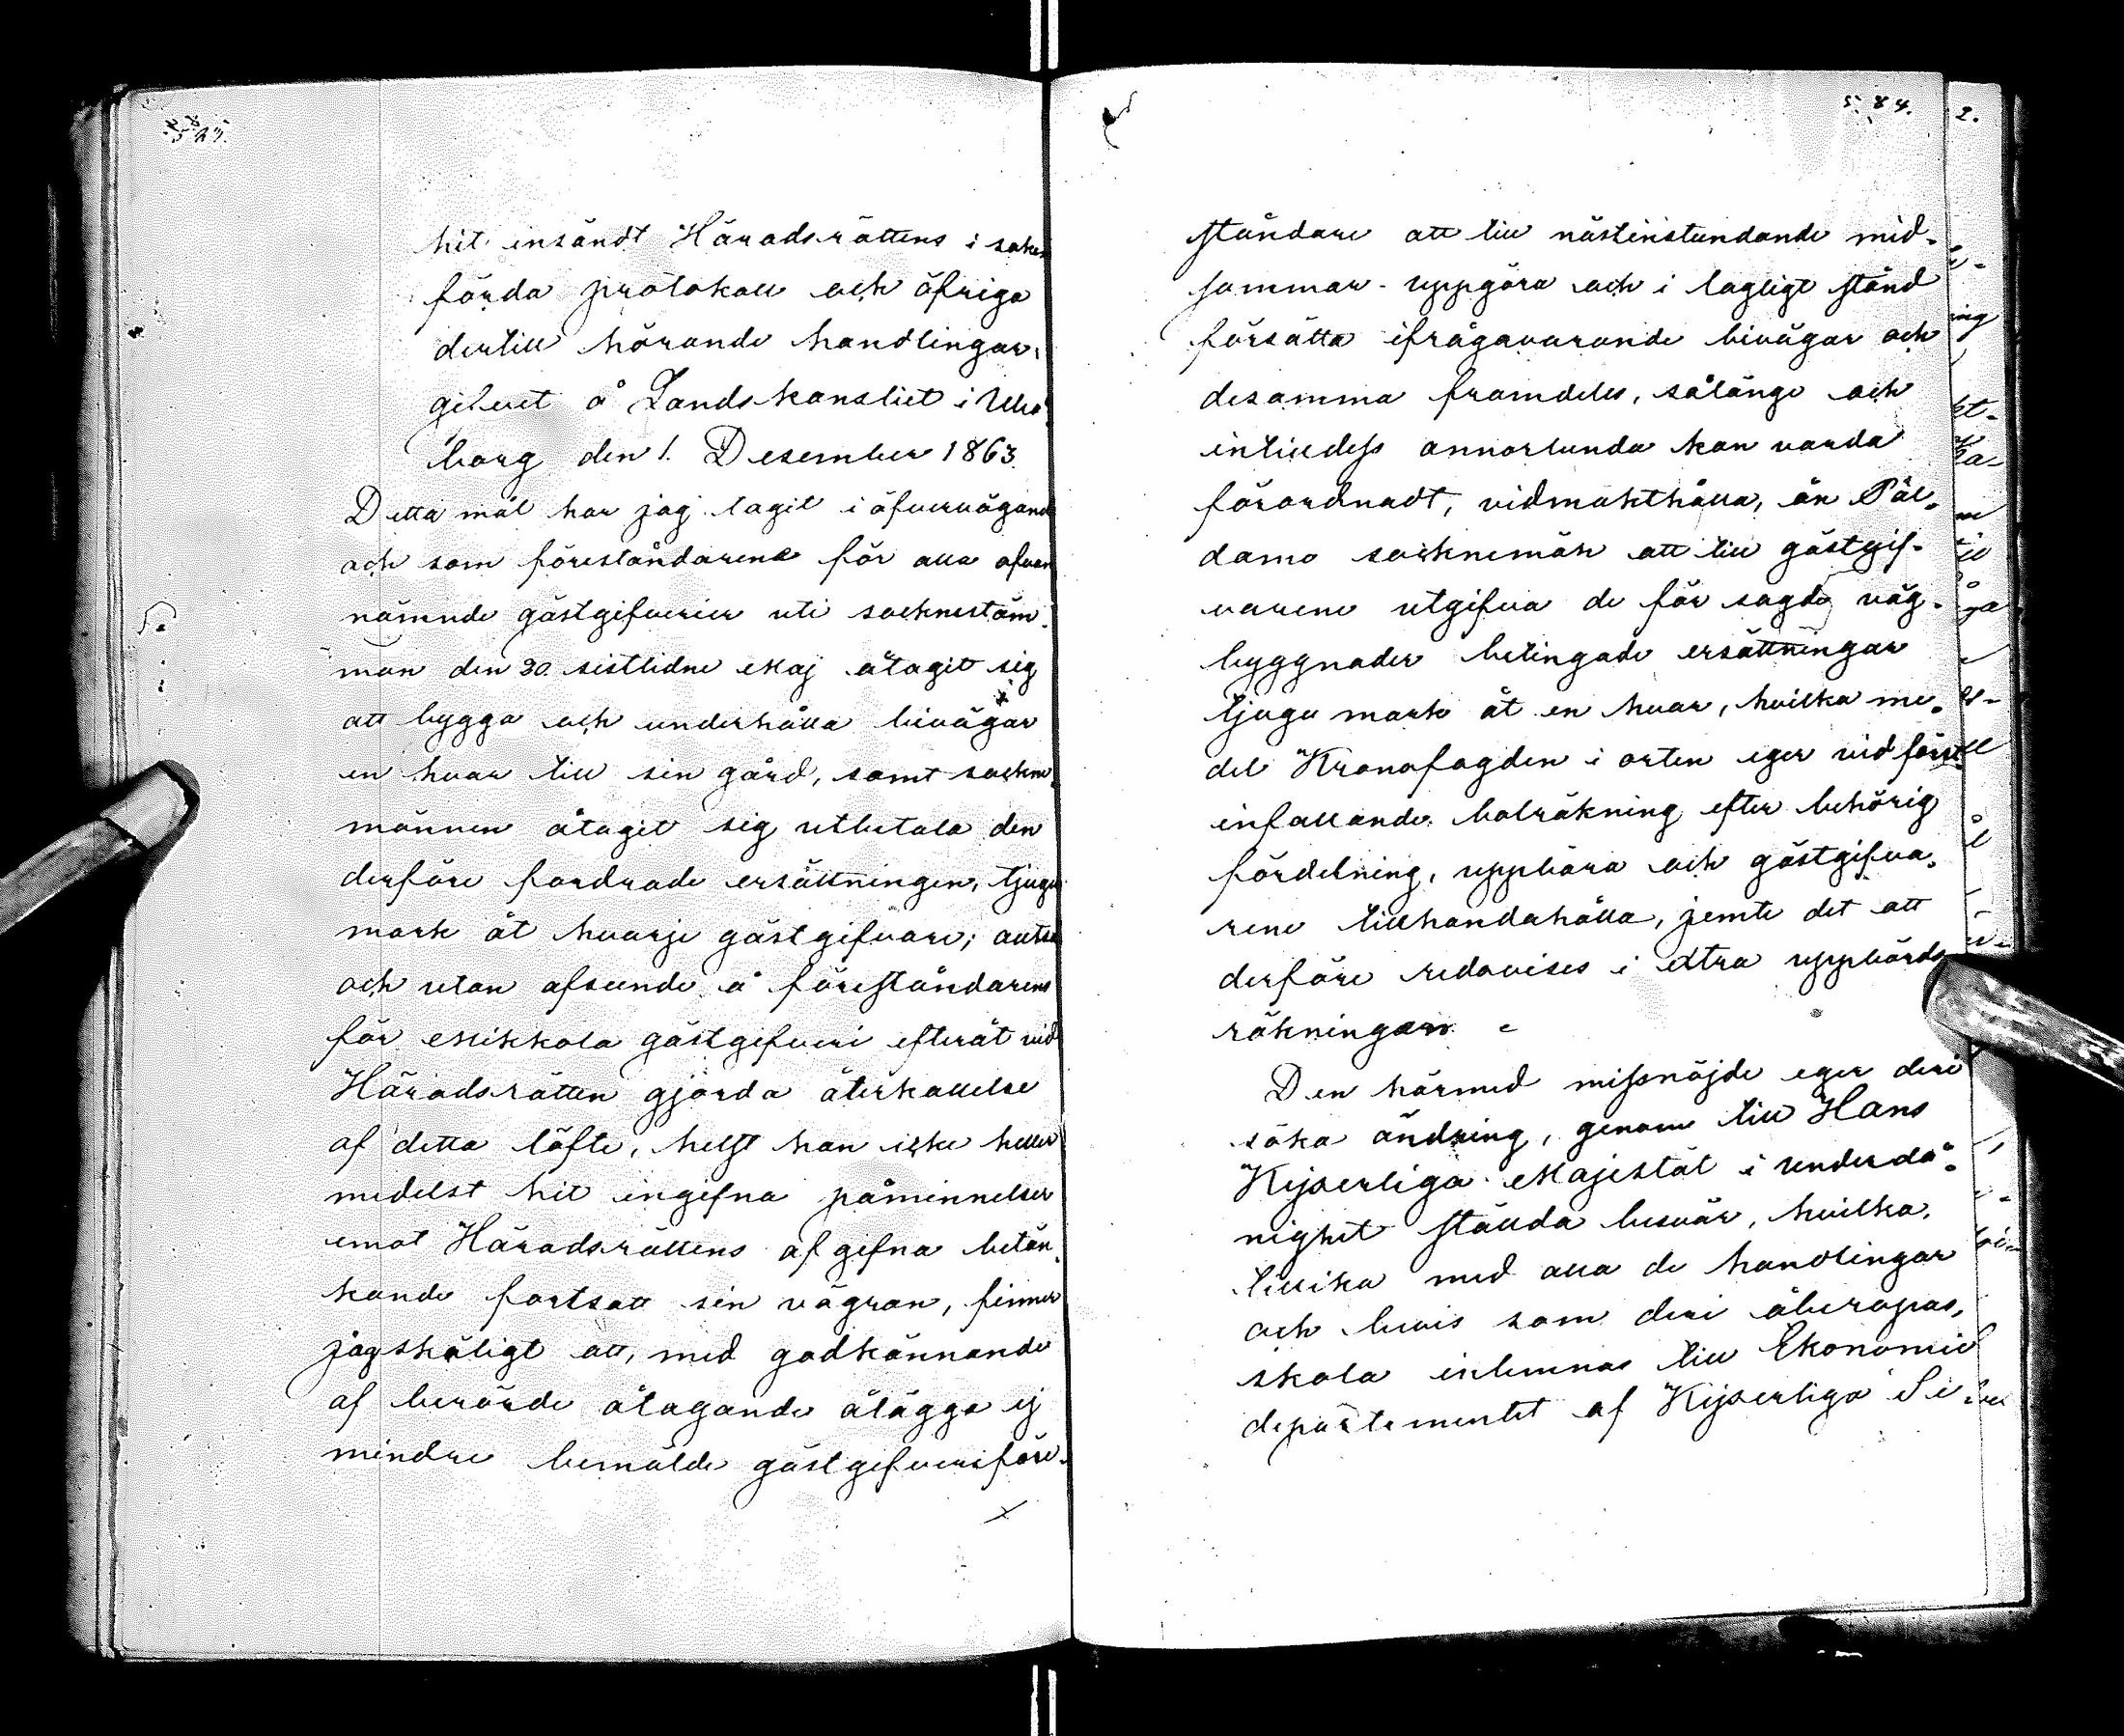 523.
hit insändt Häradsrättens i saken
förda protokoll och öfriga
dertill hörande handlingar,
gifvet å Landskansliet i Uleå
borg den 1. Desember 1863.
Detta mål har jag tagit i öfvervägande
och som föreståndarene för alla ofvan
nämnde gästgifverier uti sockenstäm¬
man den 30. sistlidne Maj åtagit sig
att bygga och underhålla bivägar
en hvar till sin gård, samt sockne¬
männen åtagit sig utbetala den
derföre fordrade ersättningen, tjugu
mark åt hvarje gästgifvare; alltså
och utan afseende å föreståndarens
för Mikkola gästgifveri efteråt vid
Häradsrätten gjorda återkallelse
af detta löfte, helst han icke heller
medelst hit ingifna påminnelser
emot Häradsrättens afgifna betän¬
kande fortsatt sin vägran, finner
jag skäligt att, med godkännande
af berörde åtagande ålägga ej
mindre bemälde gästgifveriföre¬
584.
2.
ståndare att till nästinstundande mid¬
sommar uppgöra och i lagligt stånd
försätta ifrågavarande bivägar och
desamma framdeles, sålänge och
intilldess annorlunda kan varda
förordnadt, vidmakthålla, än Pål¬
damo socknemän att till gästgif¬
varene utgifva de för sagda väg¬
byggnader betingade ersättningar
tjugu mark åt en hvar, hvilka me¬
del Kronofogden i orten eger vid först
infallande balräkning efter behörig
fördelning, uppbära och gästgifva¬
rene tillhandahålla, jemte det att
derföre redovises i extra uppbörds
räkningen.
Den härmed missnöjde eger deri
söka ändring, genom till Hans
Kejserliga Majestät i underdå¬
nighet ställda besvär, hvilka,
tillika med alla de handlingar
och bevis som deri åberopas,
skola inlemnas till Ekonomie
departementet af Kejserliga Se